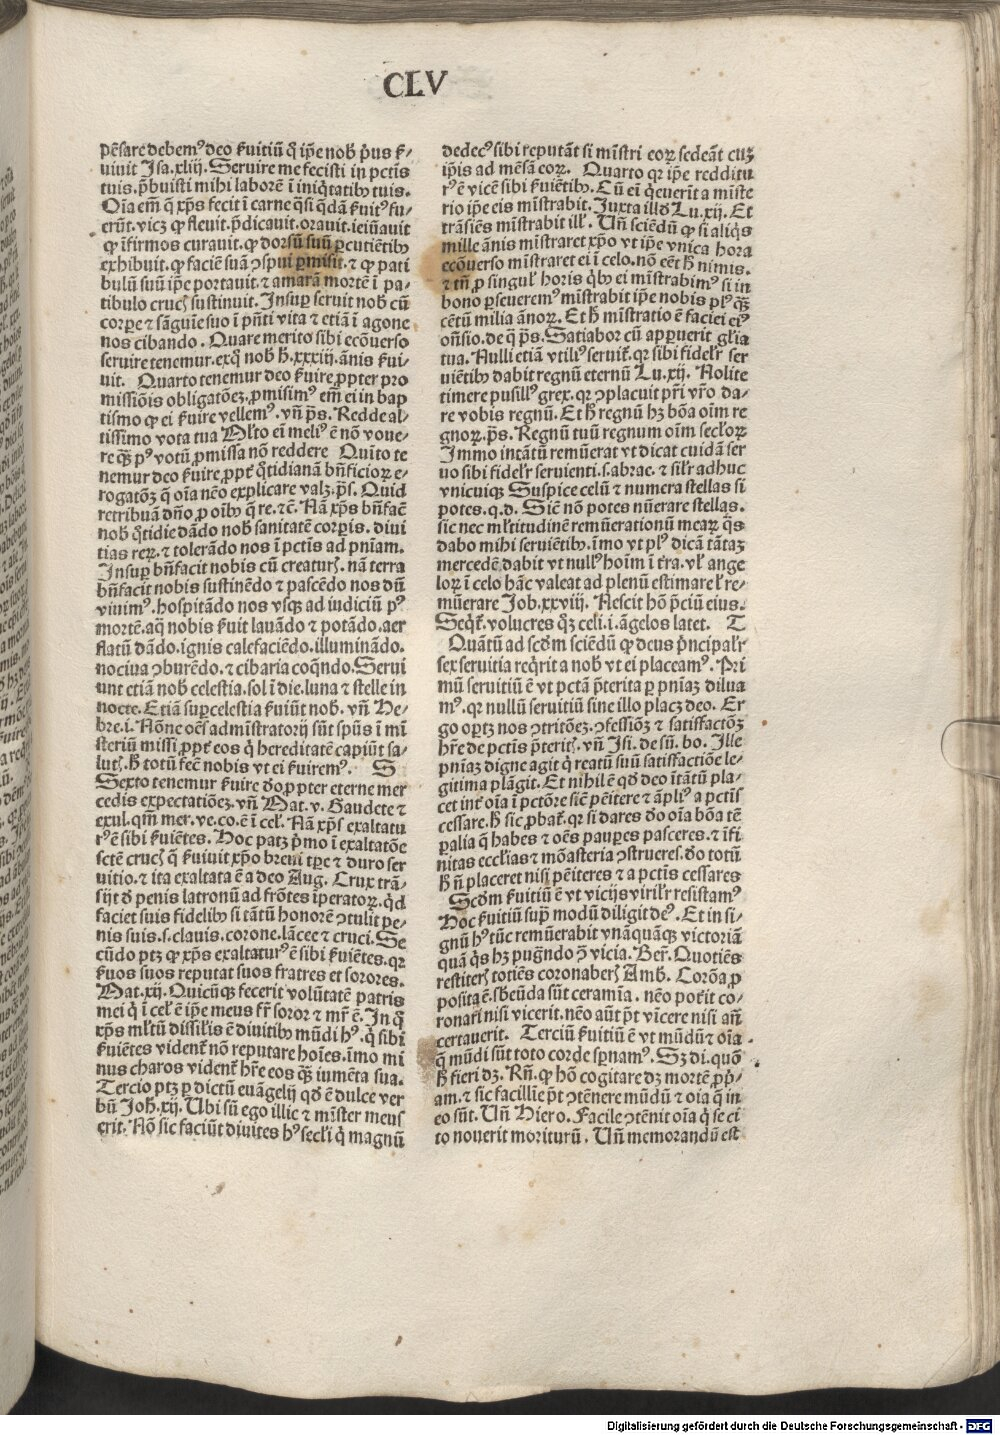 CLV
pēsare debem⁹ deo ẜuitiū q̄ ip̄e nob̄ p̄us ẜ-
uiuit Isa.xliij. Seruire me fecisti in pctis
tuis. p̄buisti mihi laborē ī iniq̄tatib⁹ tuis.
Oīa em̄ q̄ xp̄s fecit ī carne q̄si q̄dā ẜuit⁹ fu-
erūt. vicꝫ ꝙ fleuit. p̄dicauit. orauit. ieiūauit
ꝙ īfirmos curauit. ꝙ dorsū suū ꝑcutiētib⁹
exhibuit. ꝙ faciē suā ꝯspui ꝑmisit. ⁊ ꝙ pati
bulū suū ip̄e portauit. ⁊ amarā mortē ī pa-
tibulo crucꝭ sustinuit. Insuꝑ seruit nob̄ cū
corꝑe ⁊ sāguīe suo ī pn̄ti vita ⁊ etiā ī agone
nos cibando. Quare merito sibi ecōuerso
seruire tenemur. exq̄ nob̄ h̄.xxxiij. ānis ẜui-
uit. Quarto tenemur deo ẜuire ꝓpter pro
missiōis obligatōeꝫ. ꝓmisim⁹ em̄ ei in bap
tismo ꝙ ei ẜuire vellem⁹. vn̄ ps̄. Redde al-
tissimo vota tua Ml̄to eī meli⁹ ē nō voue-
re qꝫ p⁹ votū ꝓmissa nō reddere Quīto te
nemur deo ẜuire ꝓpt̄ q̄tidianā bn̄ficioꝝ e-
rogatōeꝫ q̄ oīa nēo explicare valꝫ. ps̄. Quid
retribuā dn̄o ꝓ oīb⁹ q̄ re. ⁊c̄. Nā xp̄s bn̄facē
nob̄ q̄tidie dādo nob̄ sanitatē corꝑis. diui
tias reꝝ. ⁊ tolerādo nos ī pctīs ad pn̄iam.
Insuꝑ bn̄facit nobis cū creaturꝭ. nā terra
bn̄facit nobis sustinēdo ⁊ pascēdo nos dū
viuim⁹. hospitādo nos vsqꝫ ad iudiciū p⁹
mortē. aq̄ nobis ẜuit lauādo ⁊ potādo. aer
flatū dādo. ignis calefaciēdo. illuminādo.
nociua ꝯburēdo. ⁊ cibaria coq̄ndo. Serui
unt etiā nob̄ celestia. sol ī die. luna ⁊ stelle in
nocte. Etiā suꝑcelestia ẜuiūt nob̄. vn̄ He-
bre.i. Nōne oēs admistratorij sūt spūs ī mī
steriū missi ꝓpt̄ eos q̄ hereditatē capiūt sa-
lutꝭ. h̄ totū fecē nobis vt ei ẜuirem⁹. S
Sexto tenemur ẜuire d̄o ꝓpter eterne mer
cedis expectatiōeꝫ. vn̄ Mat.v. Gaudete ⁊
exul. qm̄ mer. ve. co. ē ī cel̄. Nā xp̄s exaltatu
r⁹ ē sibi ẜuiētes. Hoc patꝫ p̄mo ī exaltatōe
sctē crucꝭ q̄ ẜuiuit xp̄o breui tꝑe ⁊ duro ser
uitio. ⁊ ita exaltata ē a deo Aug. Crux trā-
sijt d̄ penis latronū ad frōtes īperatoꝝ. q̄d
faciet suis fidelib⁹ si tātū honorē ꝯtulit pe-
nis suis. s. clauis. corone. lācee ⁊ cruci. Se
cūdo ptꝫ ꝙ xp̄s exaltatur⁹ ē sibi ẜuiētes. qꝛ
ẜuos suos reputat suos fratres et sorores.
Mat.xij. Quicūqꝫ fecerit volūtatē patris
mei q̄ ī cel̄ ē ip̄e meus fr̄ soror ⁊ mr̄ ē. In q̄
xp̄s ml̄tū dissil̄is ē diuitib⁹ mūdi h⁹. q̄ sibi
ẜuiētes vident̄ nō reputare hoīes. īmo mi
nus charos vident̄ hr̄e eos qꝫ iumēta sua.
Tercio ptꝫ ꝑ dictū euāgelij qd̄ ē dulce ver
bū Joh̄.xij. Ubi sū ego illic ⁊ mīster meus
erit. Nō sic faciūt diuites h⁹ secl̄i q̄ magnū
dedec⁹ sibi reputāt si mīstri eoꝝ sedeāt cuꝫ
ip̄is ad mēsā eoꝝ. Quarto qꝛ ip̄e redditu
r⁹ ē vicē sibi ẜuiētib⁹. Cū eī q̄euerīt a mīste
rio ip̄e eis mīstrabit. Juxta ill̄d Lu.xij. Et
trāsiēs mīstrabit ill̄. Un̄ sciēdū ꝙ si aliq̄s
mille ānis mīstraret xp̄o vt ip̄e vnica hora
ecōuerso mīstraret ei ī celo. nō eēt h̄ nimis.
⁊ tn̄ ꝓ singul̄ horis q̄b⁹ ei mīstrabim⁹ si in
bono ꝑseuerem⁹ mīstrabit ip̄e nobis pl⁹ qꝫ
cētū milia ānoꝝ. Et h̄ mīstratio ē faciei ei⁹
on̄sio. de q̄ ps̄. Satiabor cū apꝑuerit gl̄ia
tua. Nulli etiā vtili⁹ seruit̄. qꝛ sibi fidel̄r ser
uiētib⁹ dabit regnū eternū Lu.xij. Nolite
timere pusill⁹ grex. qꝛ ꝯplacuit pr̄i vr̄o da-
re vobis regnū. Et h̄ regnū hꝫ bōa oīm re
gnoꝝ. ps̄. Regnū tuū regnum oīm secl̄oꝝ
Immo intātū remūerat vt dicat cuidā ser
uo sibi fidel̄r seruienti. s. abrae. ⁊ sil̄r adhuc
vnicuiqꝫ Suspice celū ⁊ numera stellas si
potes. q.d. Sic̄ nō potes nūerare stellas.
sic nec ml̄titudinē remūerationū meaꝝ q̄s
dabo mihi seruiētib⁹. īmo vt pl⁹ dicā tātaꝫ
mercedē dabit vt null⁹ hoīm ī tr̄a. vl̄ ange
loꝝ ī celo hāc valeat ad plenū estimare l̄ re-
mūerare Job.xxviij. Nescit hō p̄ciū eius.
Seq̄t̄. volucres qꝫ celi. i. āgelos latet. T
Quātū ad scd̄m sciēdū ꝙ deus p̄ncipal̄r
sex seruitia req̄rit a nob̄ vt ei placeam⁹. Pri
mū seruitiū ē vt pctā p̄terita ꝑ pn̄iaꝫ dilua
m⁹. qꝛ nullū seruitiū sine illo placꝫ deo. Er
go oportꝫ nos ꝯtritōeꝫ. ꝯfessiōꝫ ⁊ satisfactōꝫ
hr̄e de pctis p̄teritꝭ. vn̄ Isi. de sū. bo. Ille
pn̄iaꝫ digne agit q̄ reatū suū satisfactiōe le-
gitima plāgit. Et nihil ē qd̄ deo ītātū pla-
cet int̄ oīa ī pctōre sic̄ pēitere ⁊ āpli⁹ a pctīs
cessare. h̄ sic ꝓbat̄. qꝛ si dares d̄o oīa bōa tē
ꝑalia q̄ habes ⁊ oēs pauꝑes pasceres. ⁊ īfi
nitas eccl̄ias ⁊ mōasteria ꝯstrueres. d̄o totū
h̄ n̄ placeret nisi pēiteres ⁊ a pctīs cessares
Scd̄m ẜuitiū ē vt vicijs viril̄r resistam⁹
Hoc ẜuitiū supͣ modū diligit de⁹. Et in si-
gnū h⁹ tūc remūerabit vnāquāqꝫ victoriā
quā q̄s hꝫ pugn̄do ꝯ̄ vicia. Ber̄. Quotiēs
restiterꝭ totiēs coronaberꝭ Amb̄. Corōa ꝓ
posita ē. sbeūda sūt ceramīa. nēo pot̄it co-
ronari nisi vicerit. nēo aūt p̄t vicere nisi an̄
certauerit. Terciū ẜuitiū ē vt mūdū ⁊ oīa
q̄ mūdi sūt toto corde sꝑnam⁹. Sꝫ di. quō
h̄ fieri dꝫ. Rn̄. ꝙ hō cogitare dꝫ mortē ꝓp̄-
am. ⁊ sic facillīe p̄t ꝯtēnere mūdū ⁊ oīa q̄ in
eo sūt. Un̄ Hiero. Facile ꝯtēnit oīa q̄ se ci
to nouerit moriturū. Un̄ memorandū est
Digitalisierung gefördert durch die Deutsche Forschungsgemeinschaft - DFG